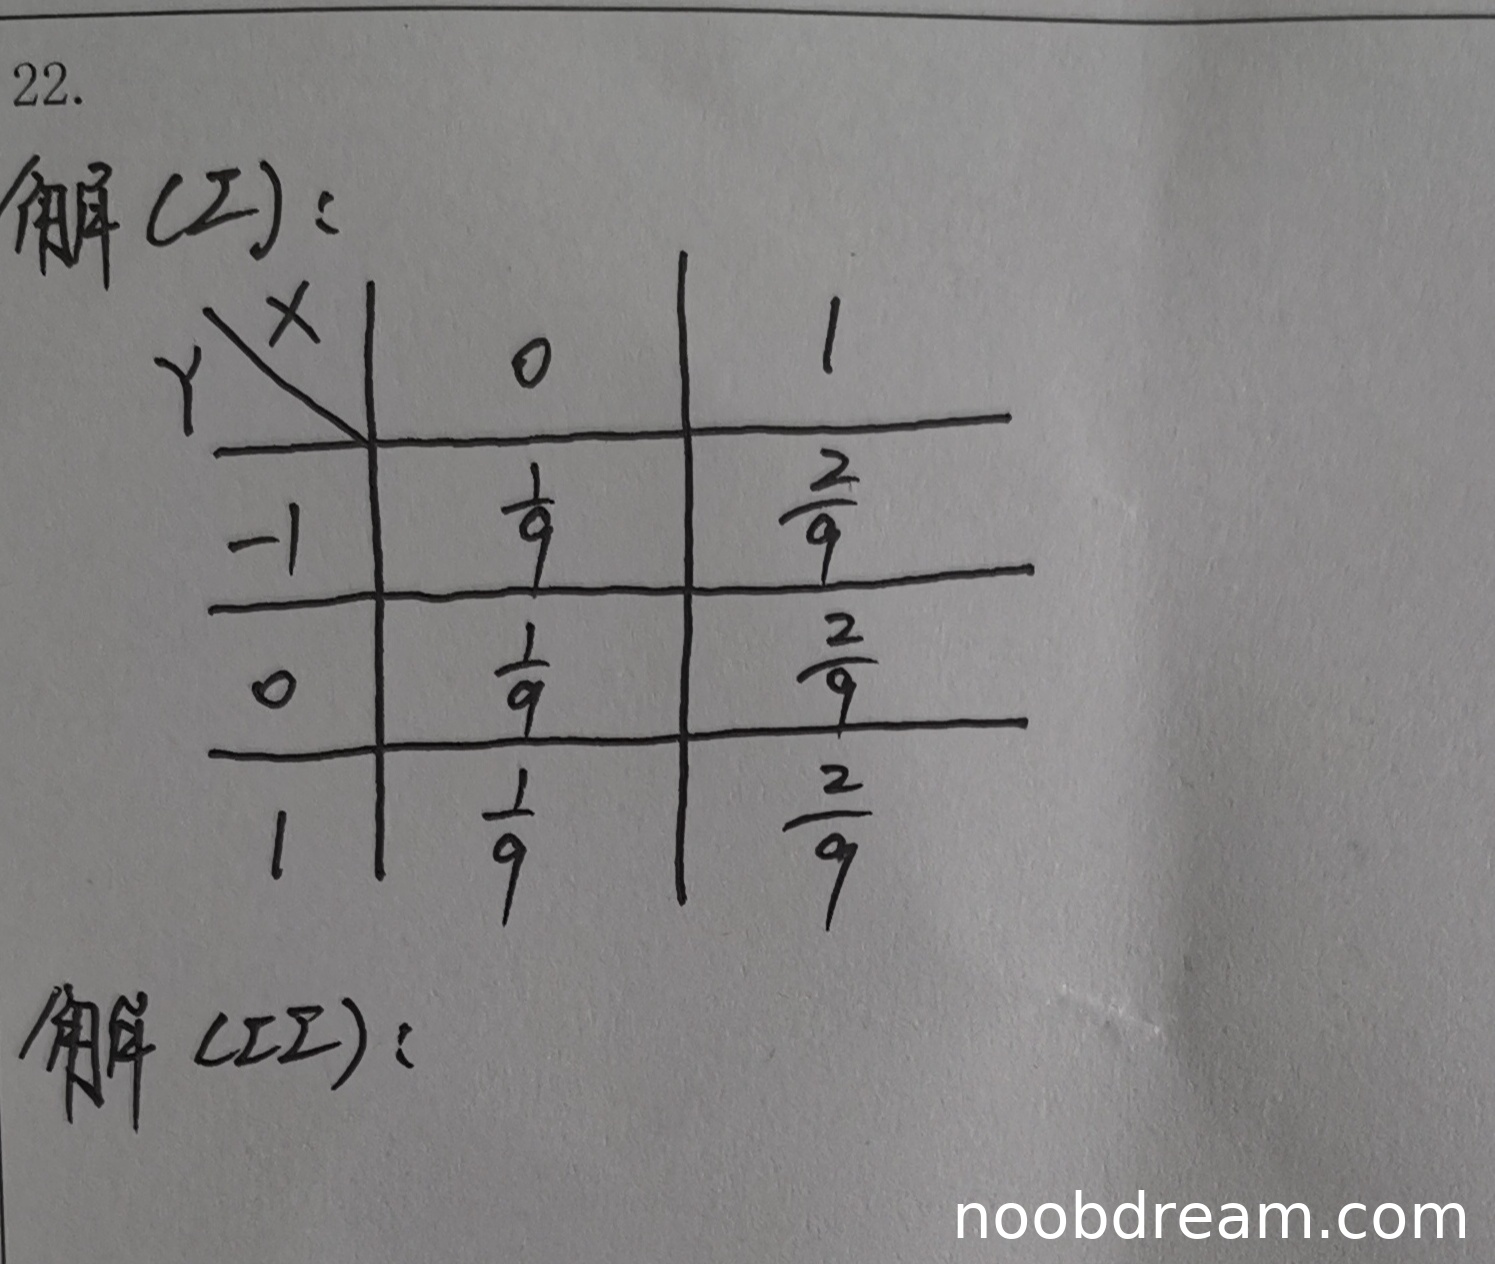 22.
解(I):
X
Y 0 1
-1 1/9 2/9
0 1/9 2/9
1 1/9 2/9
解(II):
noobdream.com